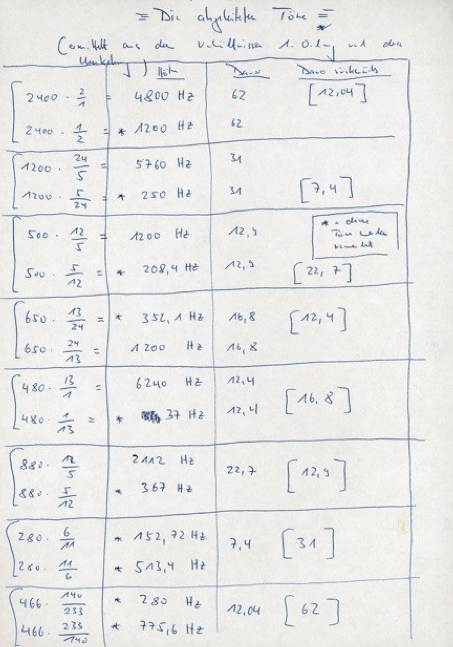 = Die abgeleiteten Töne =
(ermittelt aus den Verhältnissen 1. O. und den
Umkehrung) Höhe Dauer Dauer rückwärts
2400 · 2/1 = 4800 Hz 62 [12,04]
2400 · 1/2 = * 1200 Hz 62
1200 · 24/5 = 5760 Hz 31
1200 · 5/24 = * 250 Hz 31 [7,4]
500 · 12/5 = 1200 Hz 12,9
* = diese
Töne werden
500 · 5/12 = * 208,4 Hz 12,9 [22,7]
650 · 13/24 = * 352,1 Hz 16,8 [12,4]
650 · 24/13 = 1200 Hz 16,8
480 · 13/1 = 6240 Hz 12,4
[16,8]
480 · 1/13 = * 37 Hz 12,4
880 · 12/5 2112 Hz
22,7 [12,9]
880 · 5/12 * 367 Hz
280 · 6/11 * 152,72 Hz
7,4 [31]
280 · 11/6 * 513,4 Hz
466 · 140/233 * 280 Hz
12,04 [62]
466 · 233/140 * 775,6 Hz